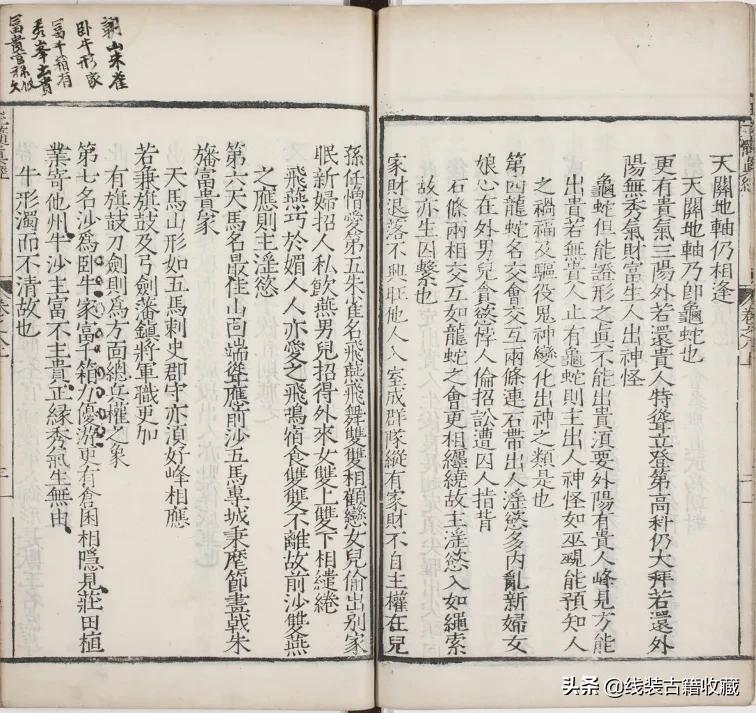 天關地軸仍相逢
天關地軸乃即龜蛇也
更有貴氣三陽外若還貴人特聳立登第高科仍大拜若還外
陽無秀氣財富生人出神怪
龜蛇但能證形之眞不能出貴須要外陽有貴人峰見方能
出貴若無貴人止有龜蛇則主出人神怪如巫覡能預知人
之禍福及驅役鬼神變化出神之類是也
第四龍蛇名交會交互兩條連石帶出人淫慾多內亂新婦女
娘心在外男兒貪慾悖人倫招訟遭囚人指背
石條兩相交互如龍蛇之會更相纏繞故主淫慾入如繩索
故亦生囚繫也
家財退落不興旺他人入室成群隊縱有家財不自主權在兒
孫任憎愛第五朱雀名飛燕飛舞雙雙相顧戀女兒偷出別家
眠新婦招人私飲燕男兒招得外來女雙上雙下相繾綣
飛燕巧於媚人人亦愛之飛鳴宿食雙雙不離故前沙雙燕
之應則主淫慾
第六天馬名最佳山回端聳應前沙五馬專城秉麾節畫戟朱
旛富貴家
天馬山形如五馬刺史郡守亦須好峰相應
若兼旗鼓及弓劍藩鎮將軍職更加
有旗鼓刀劍則爲方面總兵權之象
第七名沙爲臥牛家富千箱力優游更有倉囷相隱見莊田植
業寄他州牛沙主富不主貴正緣秀氣生無由
牛形濁而不清故也
山朱雀
卧牛形家
富千箱有
秀峯出貴
富貴官祿
卷之八上
三
头条 @线装古籍收藏